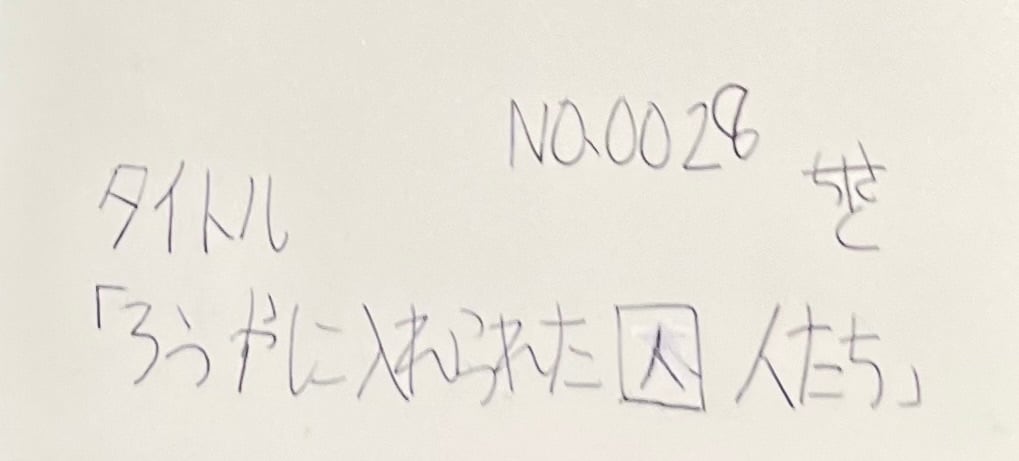 NO.0028
タイトル
「ろうやに入れられた囚人たち」